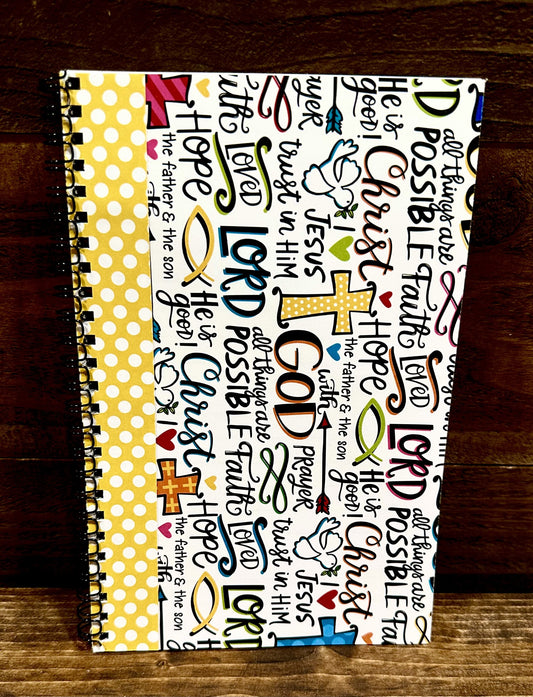 all things are
POSSIBLE
Faith
Loved
LORD
all things are
POSSIBLE
He is
good!
Christ
I
HOPE
the father & the son
He is
good!
Christ
PRAYER
JESUS
trust in Him
GOD
with
PRAYER
JESUS
trust in Him
Faith
Loved
LORD
all things are
POSSIBLE
Faith
Loved
LORD
HOPE
the father & the son
He is
good!
Christ
I
HOPE
the father & the son